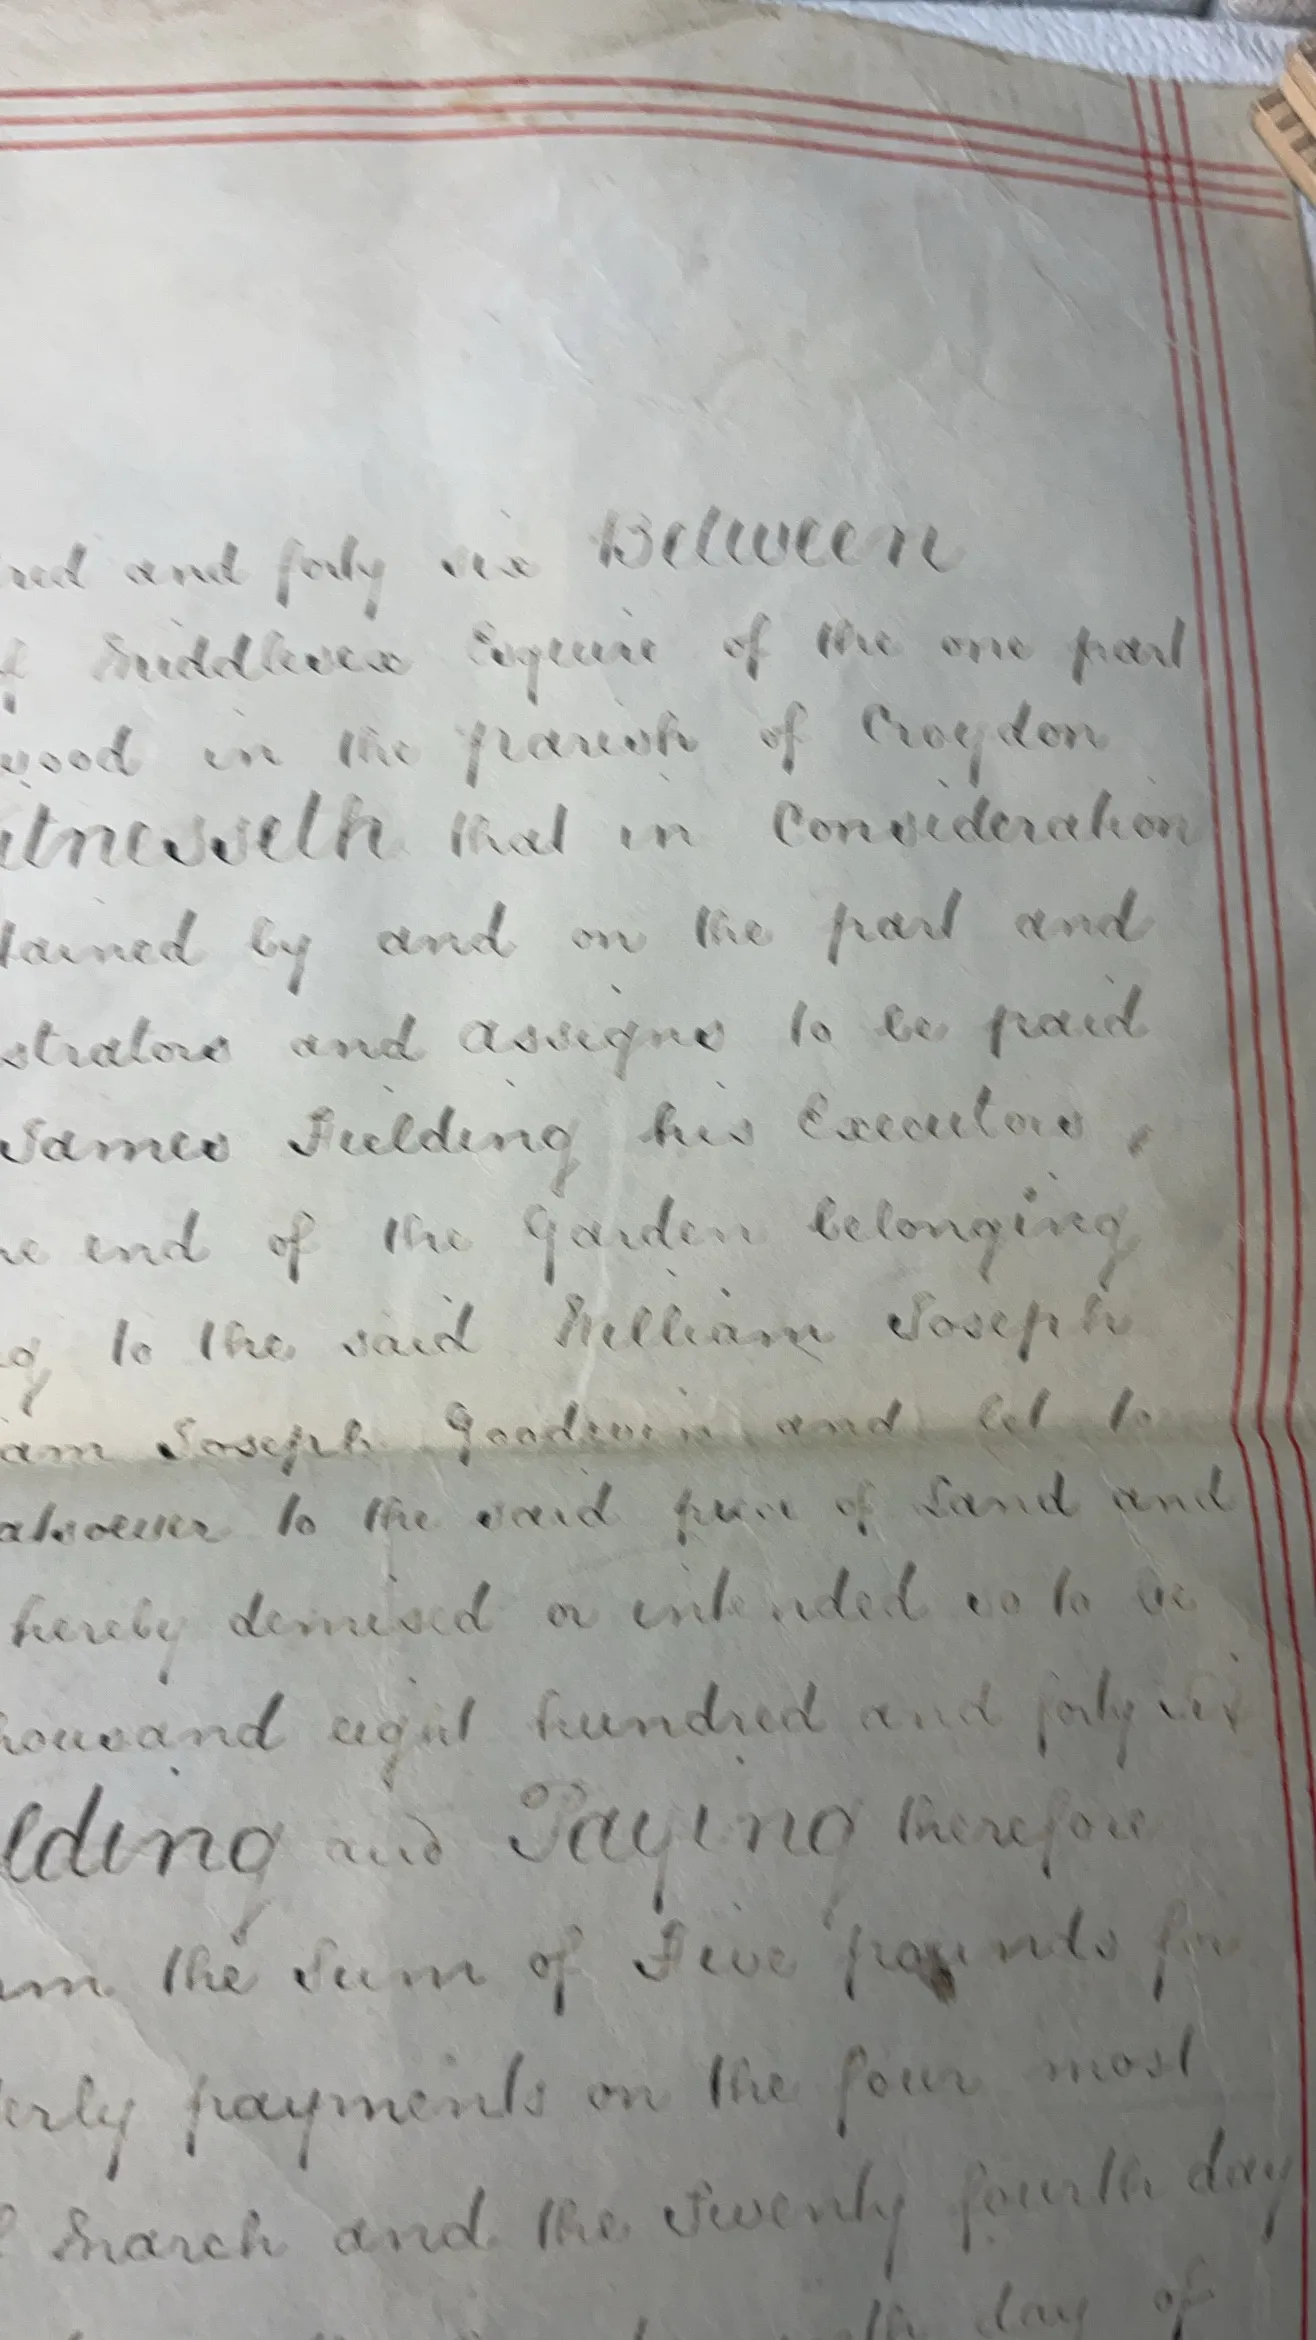 red and forty six Between
Middlesex Esquire of the one part
wood in the parish of Croydon
itnesseth that in Consideration
tained by and on the part and
strators and assigns to be paid
James Fielding his Executors,
he end of the Garden belonging
g to the said William Joseph
am Joseph Goodwin and let to
atsoever to the said piece of Land and
hereby demised or intended so to be
housand eight hundred and forty six
lding and Paying therefore
um the Sum of Five pounds for
erly payments on the four most
March and the Twenty fourth day
th day of